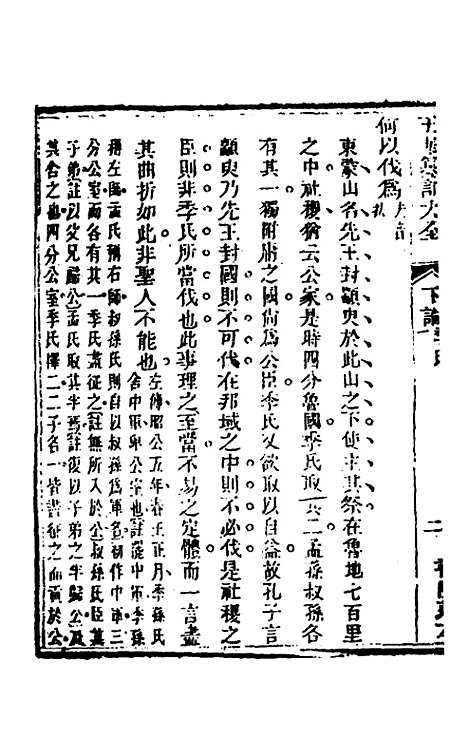 何以伐爲
東蒙山名先王封顓臾於此山之下使主其祭在魯地七百里
之中社稷猶云公家是時四分魯國季氏取其二孟孫叔孫各
有其一獨附庸之國尚爲公臣季氏又欲取以自益故孔子言
顓臾乃先王封國則不可伐在邦域之中則不必伐是社稷之
臣則非季氏所當伐也此事理之至當不易之定體而一言盡
其曲折如此非聖人不能也
左傳昭公五年春王正月季孫氏
舍中軍卑公室也註罷中軍季孫
稱左師孟氏稱右師叔孫氏則自以叔孫爲軍名初作中軍三
分公室而各有其一季氏盡征之註無所入於公叔孫氏臣其
子弟註以父兄歸公孟氏取其半焉註復以子弟之半歸公及
其舍之也四分公室季氏擇二二子各一皆盡征之而貢於公
下論
二